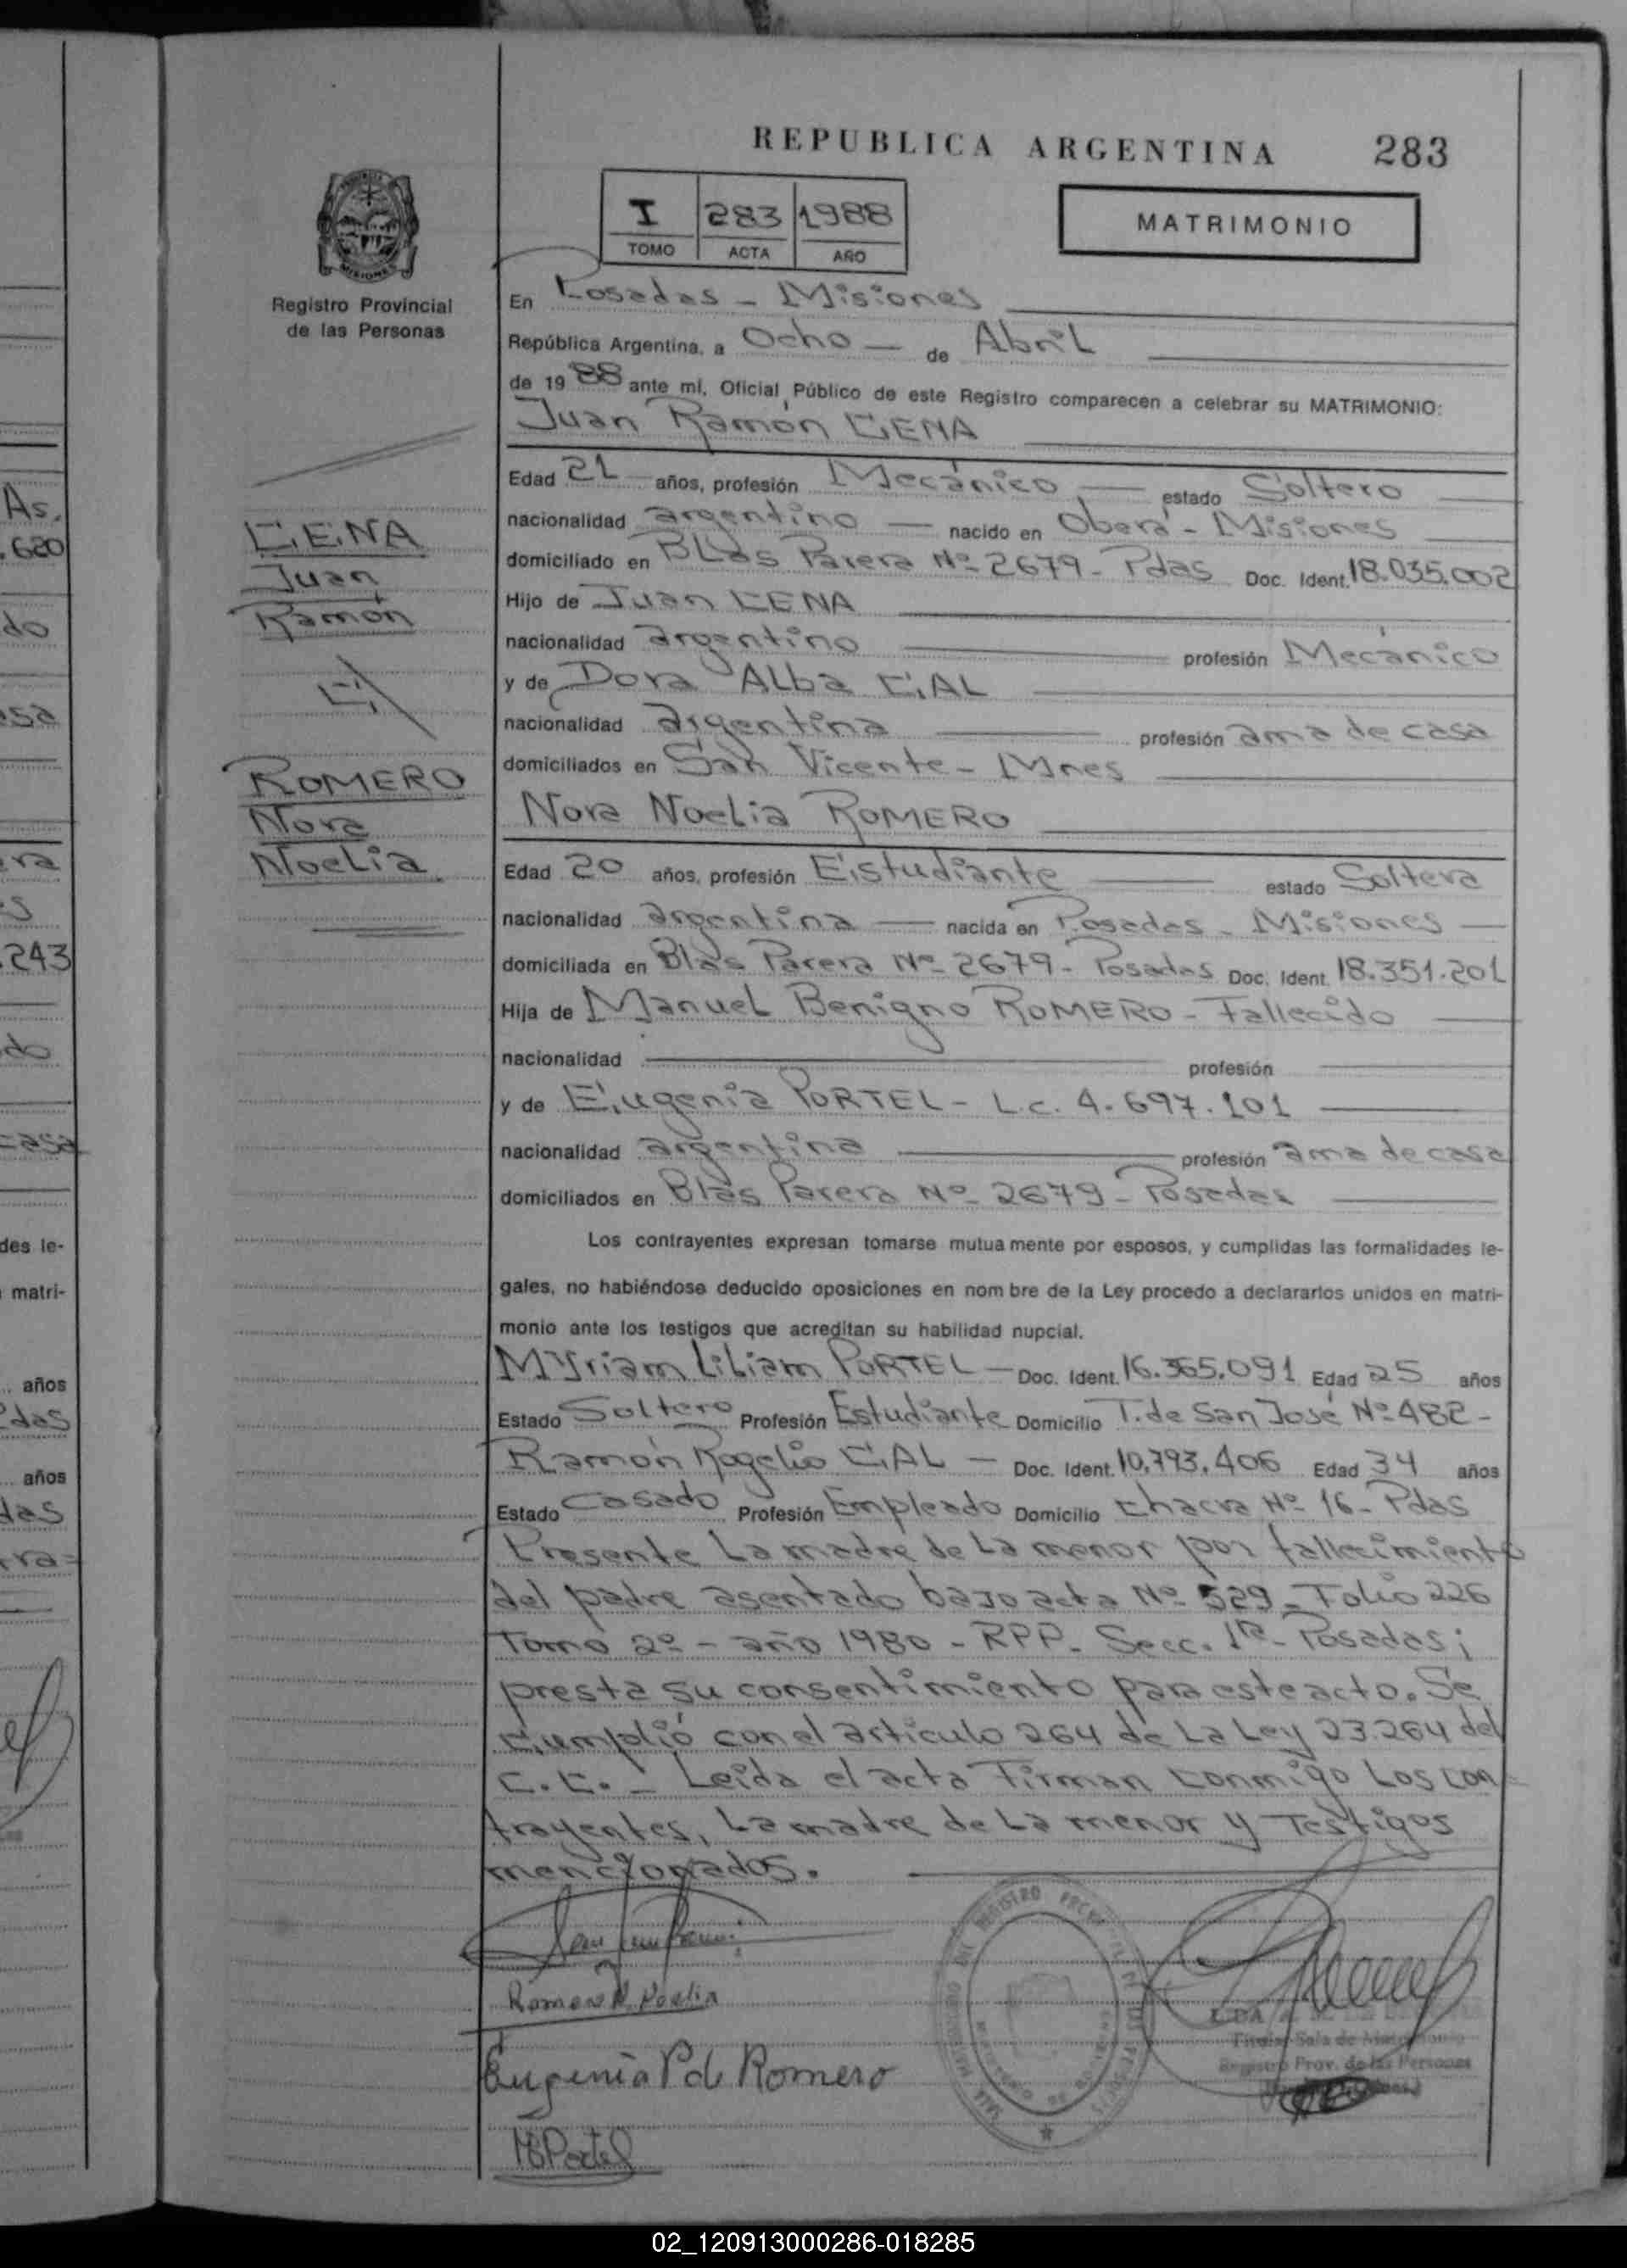 REPUBLICA ARGENTINA
283
I 283 1988
TOMO ACTA AÑO
MATRIMONIO
MISIONES
Registro Provincial
de las Personas
En Posadas - Misiones
República Argentina, a Ocho de Abril
de 1988 ante mi, Oficial Público de este Registro comparecen a celebrar su MATRIMONIO:
Juan Ramón CENA
Edad 21 años, profesión Mecánico estado Soltero
nacionalidad argentino nacido en Oberá - Misiones
domiciliado en Blas Parera Nº 2679 - Pdas Doc. Ident. 18.035.002
Hijo de Juan CENA
nacionalidad argentino profesión Mecánico
y de Dora Alba CIAL
nacionalidad argentina profesión ama de casa
domiciliados en San Vicente - Mnes
Nora Noelia ROMERO
Edad 20 años, profesión Estudiante estado Soltera
nacionalidad argentina nacida en Posadas - Misiones
domiciliada en Blas Parera Nº 2679 - Posadas Doc. Ident. 18.351.201
Hija de Manuel Benigno ROMERO - Fallecido
nacionalidad profesión
y de Eugenia PORTEL - L.C. 4.697.101
nacionalidad argentina profesión ama de casa
domiciliados en Blas Parera Nº 2679 - Posadas
Los contrayentes expresan tomarse mutuamente por esposos, y cumplidas las formalidades le-
gales, no habiéndose deducido oposiciones en nombre de la Ley procedo a declararlos unidos en matri-
monio ante los testigos que acreditan su habilidad nupcial.
Myriam Liliam PORTEL - Doc. Ident. 16.365.091 Edad 25 años
Estado Soltero Profesión Estudiante Domicilio T. de San José Nº 482 -
Ramón Rogelio CIAL - Doc. Ident. 10.793.406 Edad 34 años
Estado Casado Profesión Empleado Domicilio Chacra Nº 16 - Pdas
Presente La madre de La menor por fallecimiento
del padre asentado bajo acta Nº 529 - Folio 226
Tomo 2º - año 1980 - RPP - Secc. 1ra - Posadas;
presta su consentimiento para este acto. Se
Cumplió con el artículo 264 de La Ley 23.264 del
C.C. - Leída el acta Firman conmigo Los con-
trayentes, La madre de La menor y Testigos
mencionados.
CENA
Juan
Ramón
ROMERO
Nora
Noelia
Romero N. Noelia
Eugenia P de Romero
M Portel
Titular Sala de Matrimonio
Registro Prov. de las Personas
As.
.620
do
asa
era
es
.243
do
casa
des le-
matri-
años
Pdas
años
das
02_120913000286-018285